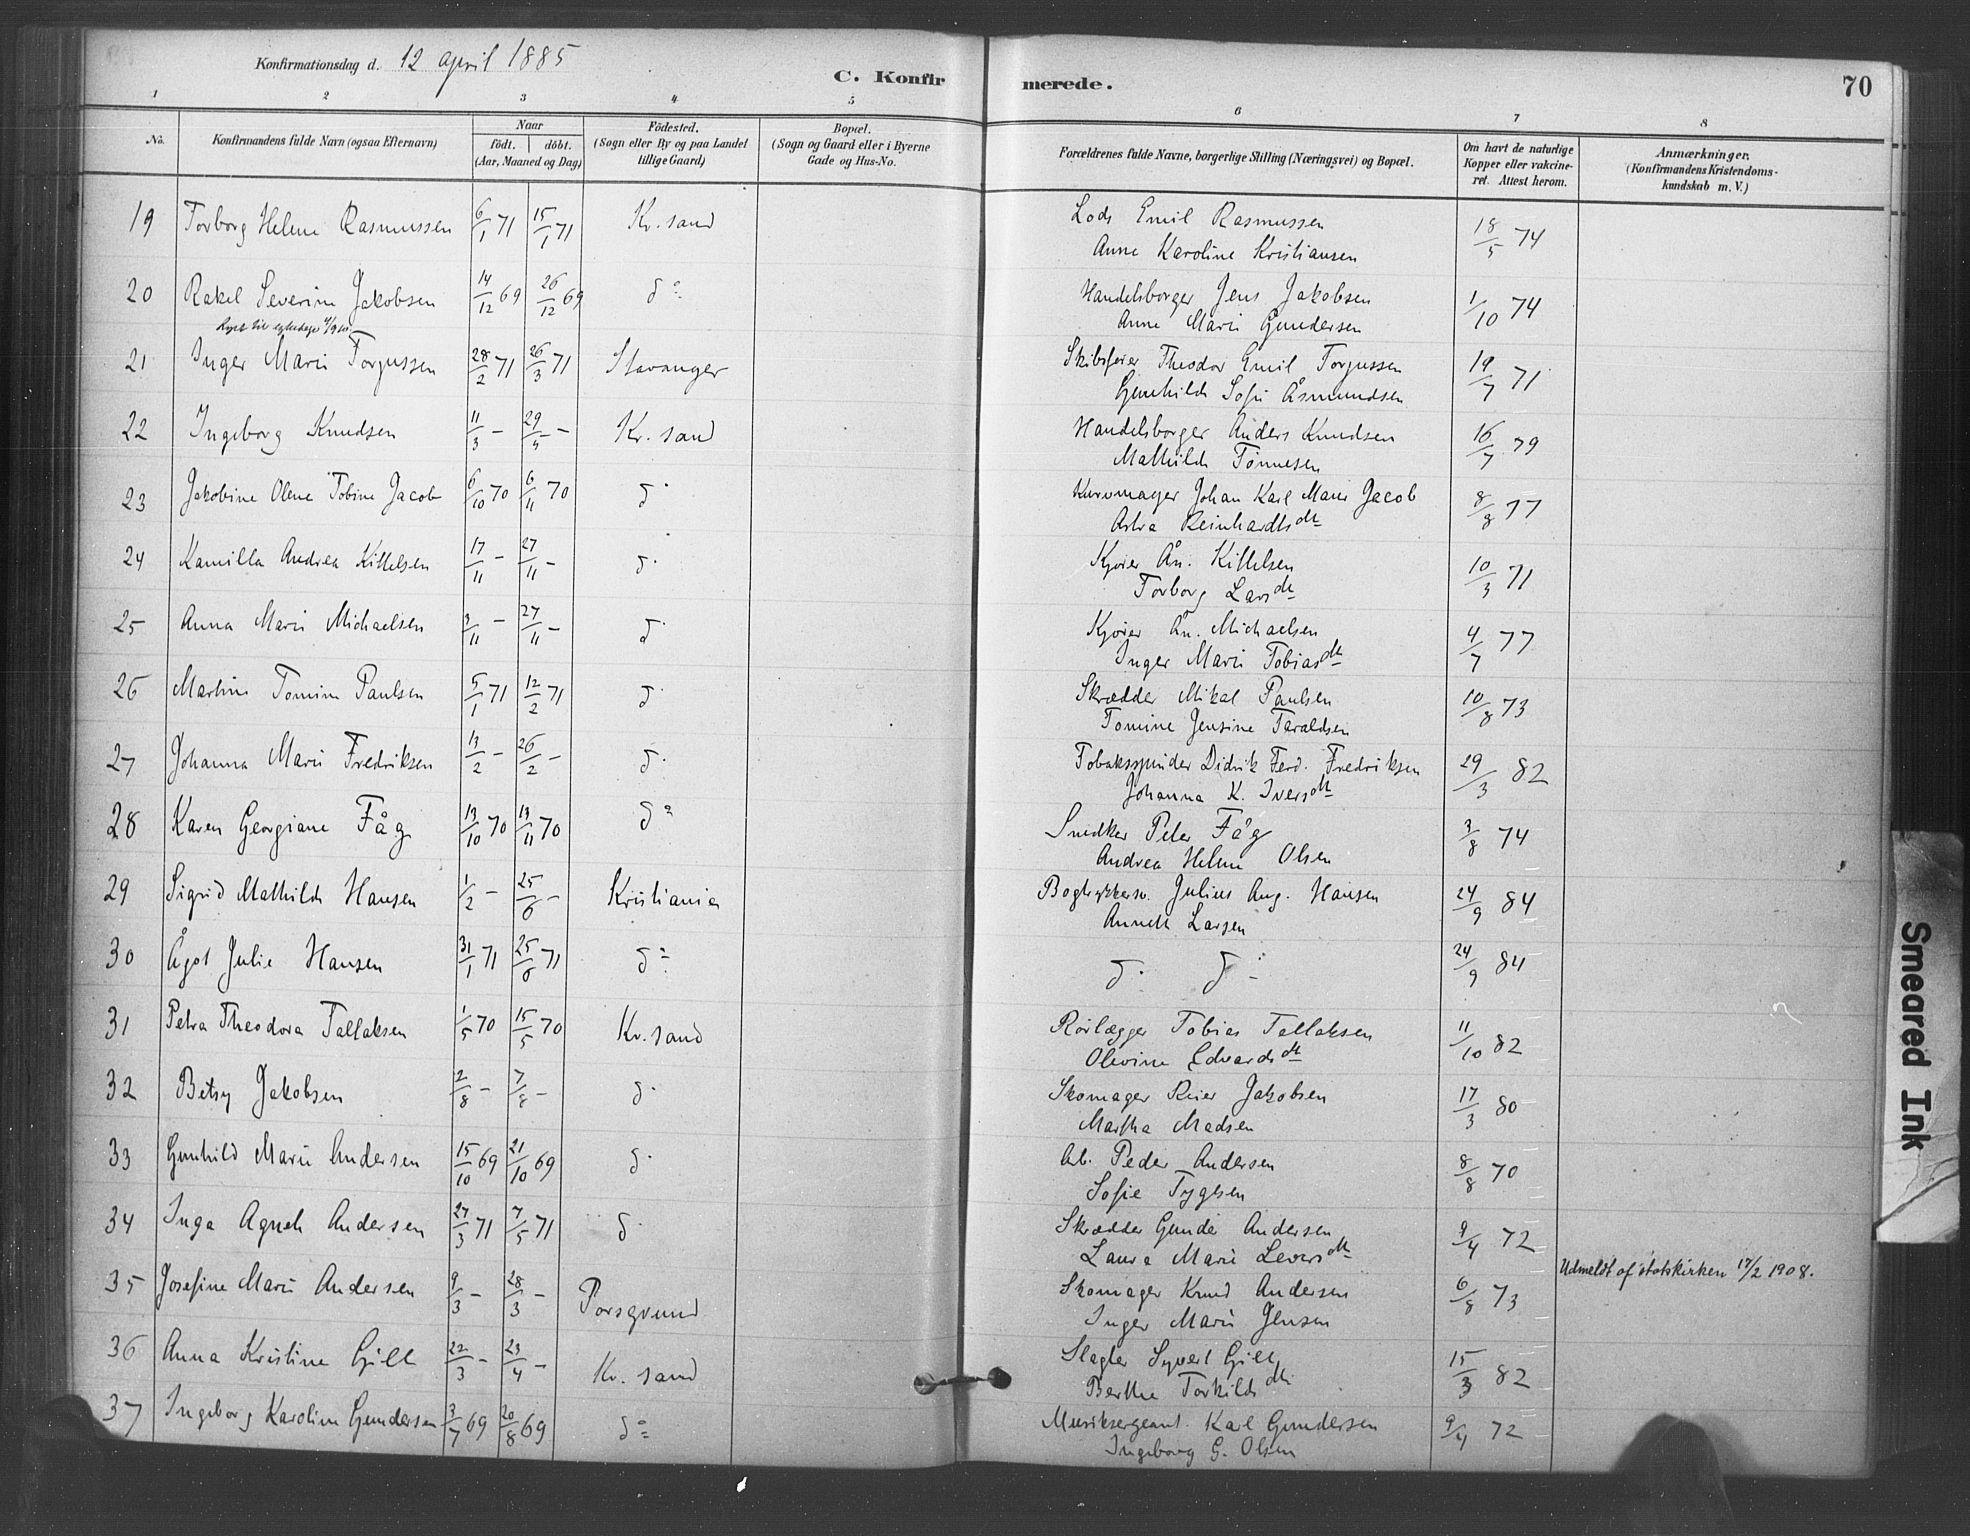 Konfirmationsdag d. 12 april 1885
C. Konfirmerede.
70
1 2 3 4 5 6 7 8
No.
Konfirmandens fulde Navn (ogsaa Efternavn)
Naar
födt. döbt.
(Aar, Maaned og Dag)
Födested.
(Sogn eller By og paa Landet
tillige Gaard)
Bopæl.
(Sogn og Gaard eller i Byerne
Gade og Hus-No.
Forældrenes fulde Navne, borgerlige Stilling (Næringsvei) og Bopæl.
Om havt de naturlige
Kopper eller vakcine-
ret. Attest herom.
Anmærkninger.
(Konfirmandens Kristendoms-
kundskab m. V.)
19 Torborg Helene Rasmussen 6/1 71 15/1 71 Kr. sand Lods Emil Rasmussen 18/5 74
Anne Karoline Kristiansen
20 Rakel Severine Jakobsen 14/12 69 26/12 69 do Handelsborger Jens Jakobsen 1/10 74
Anne Marie Gundersen
21 Inger Marie Torgussen 28/2 71 26/3 71 Stavanger Skibsfører Theodor Emil Torgussen 19/7 71
Gunhild Sofie Åsmundsen
22 Ingeborg Knudsen 11/3 - 29/5 - Kr. sand Handelsborger Anders Knudsen 16/7 79
Mathilde Tønnesen
23 Jakobine Olene Tobine Jacob 6/10 70 6/11 70 do Kurvmager Johan Karl Jacob 8/8 77
Reinhardtsdt
24 Kamilla Andrea Kittelsen 17/11 - 27/11 - do Kjører An. Kittelsen 10/3 71
Torborg Larsdt
25 Anna Marie Michaelsen 3/11 - 27/11 - do Kjører An. Michaelsen 4/7 77
Inger Marie Tobiasdt
26 Martine Tomine Paulsen 5/1 71 12/2 71 do Skrædder Mikal Paulsen 10/8 73
Tomine Jensine Taraldsen
27 Johanna Marie Fredriksen 13/2 - 26/2 - do Tobakspinder Didrik Ferd. Fredriksen 29/3 82
Johanna K. Iversdt
28 Karen Georgiane Fåg 13/10 70 13/11 70 do Snedker Peter Fåg 3/8 74
Andrea Helene Olsen
29 Sigrid Mathilde Hansen 1/2 - 25/6 - Kristiania Bogtrykkersv. Julius Aug. Hansen 24/9 84
Annette Larsen
30 Ågot Julie Hansen 31/1 71 25/6 71 do do do 24/9 84
31 Petra Theodora Tallaksen 1/5 70 15/5 70 Kr. sand Rørlægger Tobias Tallaksen 11/10 82
Olevine Edvardsdt
32 Betsy Jakobsen 2/8 - 7/8 - do Skomager Reier Jakobsen 17/3 80
Martha Madsen
33 Gunhild Marie Andersen 15/10 69 21/10 69 do Arb. Peder Andersen 8/8 70
Sofie Tygesen
34 Inga Agnete Andersen 27/3 71 7/5 71 do Skrædder Gunde Andersen 9/4 72
Laura Marie Leversdt
35 Josefine Marie Andersen 9/3 - 28/3 - Porsgrund Skomager Knud Andersen 6/8 73 Udmeldt af statskirken 17/2 1908.
Inger Marie Jensen
36 Anna Kristine Gill 22/3 - 23/4 - Kr. sand Slagter Syvert Gill 15/3 82
Berthe Torkildsdt
37 Ingeborg Karoline Gundersen 3/7 69 20/8 69 do Musiksergeant. Karl Gundersen 9/4 72
Ingeborg G. Olsen
Smeared Ink